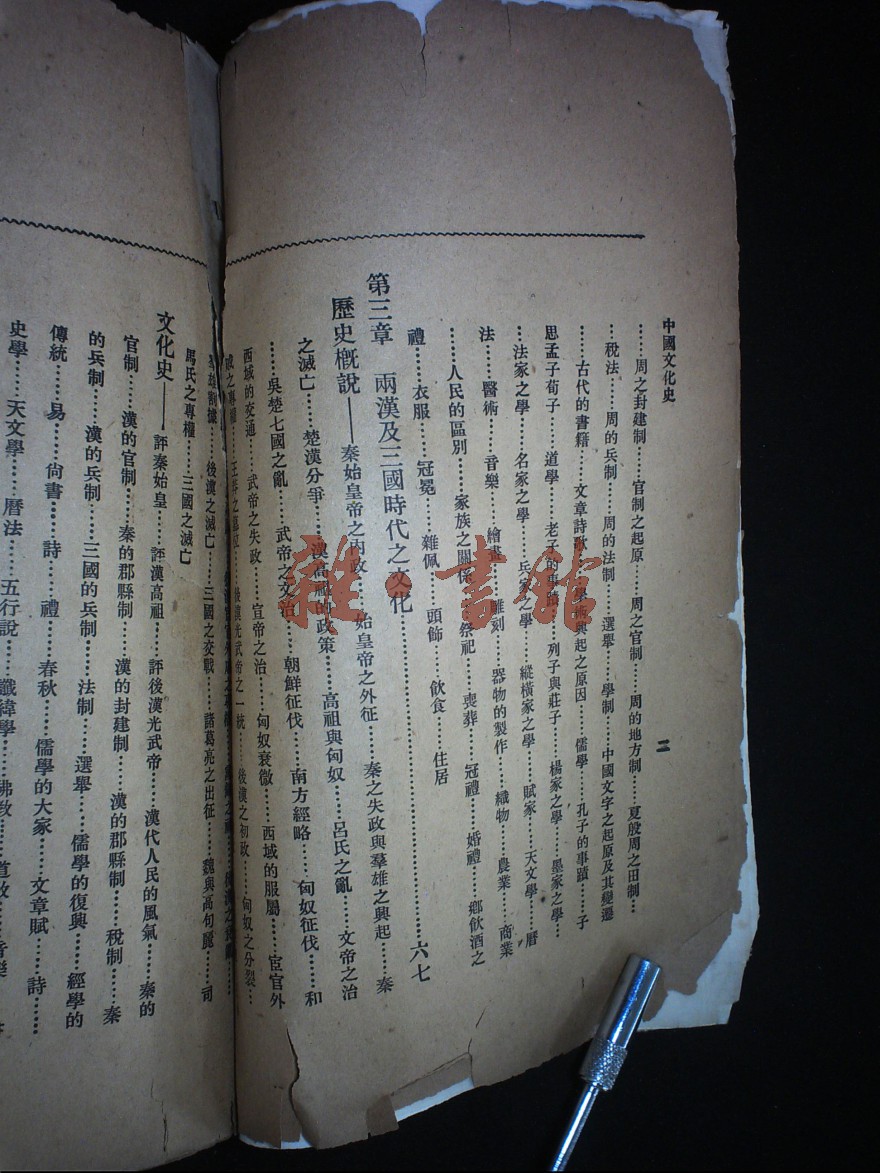 中國文化史
二
……周之封建制……官制之起原……周之官制……周的地方制……夏殷周之田制……
……稅法……周的兵制……周的法制……選舉……學制……中國文字之起原及其變遷
……古代的書籍……文章詩歌……學術興起之原因……儒學……孔子的事蹟……子
思孟子荀子……道學……老子的事蹟……列子與莊子……楊家之學……墨家之學……
……法家之學……名家之學……兵家之學……縱橫家之學……賦家……天文學……曆
法……醫術……音樂……繪畫……雕刻……器物的製作……織物……農業……商業
……人民的區別……家族之關係……祭祀……喪葬……冠禮……婚禮……鄉飲酒之
禮……衣服……冠冕……雜佩……頭飾……飲食……住居
第三章 兩漢及三國時代之文化……六七
歷史槪說——秦始皇帝之內政……始皇帝之外征……秦之失政與羣雄之興起……秦
之滅亡……楚漢分爭……漢高祖的政策……高祖與匈奴……呂氏之亂……文帝之治
……吳楚七國之亂……武帝之文治……朝鮮征伐……南方經略……匈奴征伐……和
西域的交通……武帝之失政……宣帝之治……匈奴衰微……西域的服屬……宦官外
戚之專權……王莽之……後漢光武帝之一統……後漢之初政……匈奴之分裂……
後漢之滅亡……三國之交戰……諸葛亮之出征……魏與高句麗……司
馬氏之專權……三國之滅亡
文化史——評秦始皇……評漢高祖……評後漢光武帝……漢代人民的風氣……秦的
官制……漢的官制……秦的郡縣制……漢的封建制……漢的郡縣制……稅制……秦
的兵制……漢的兵制……三國的兵制……法制……選舉……儒學的復興……經學的
傳統……易……尚書……詩……禮……春秋……儒學的大家……文章賦……詩……
史學……天文學……曆法……五行說……讖緯學……佛教……道教……音樂
雜·書館